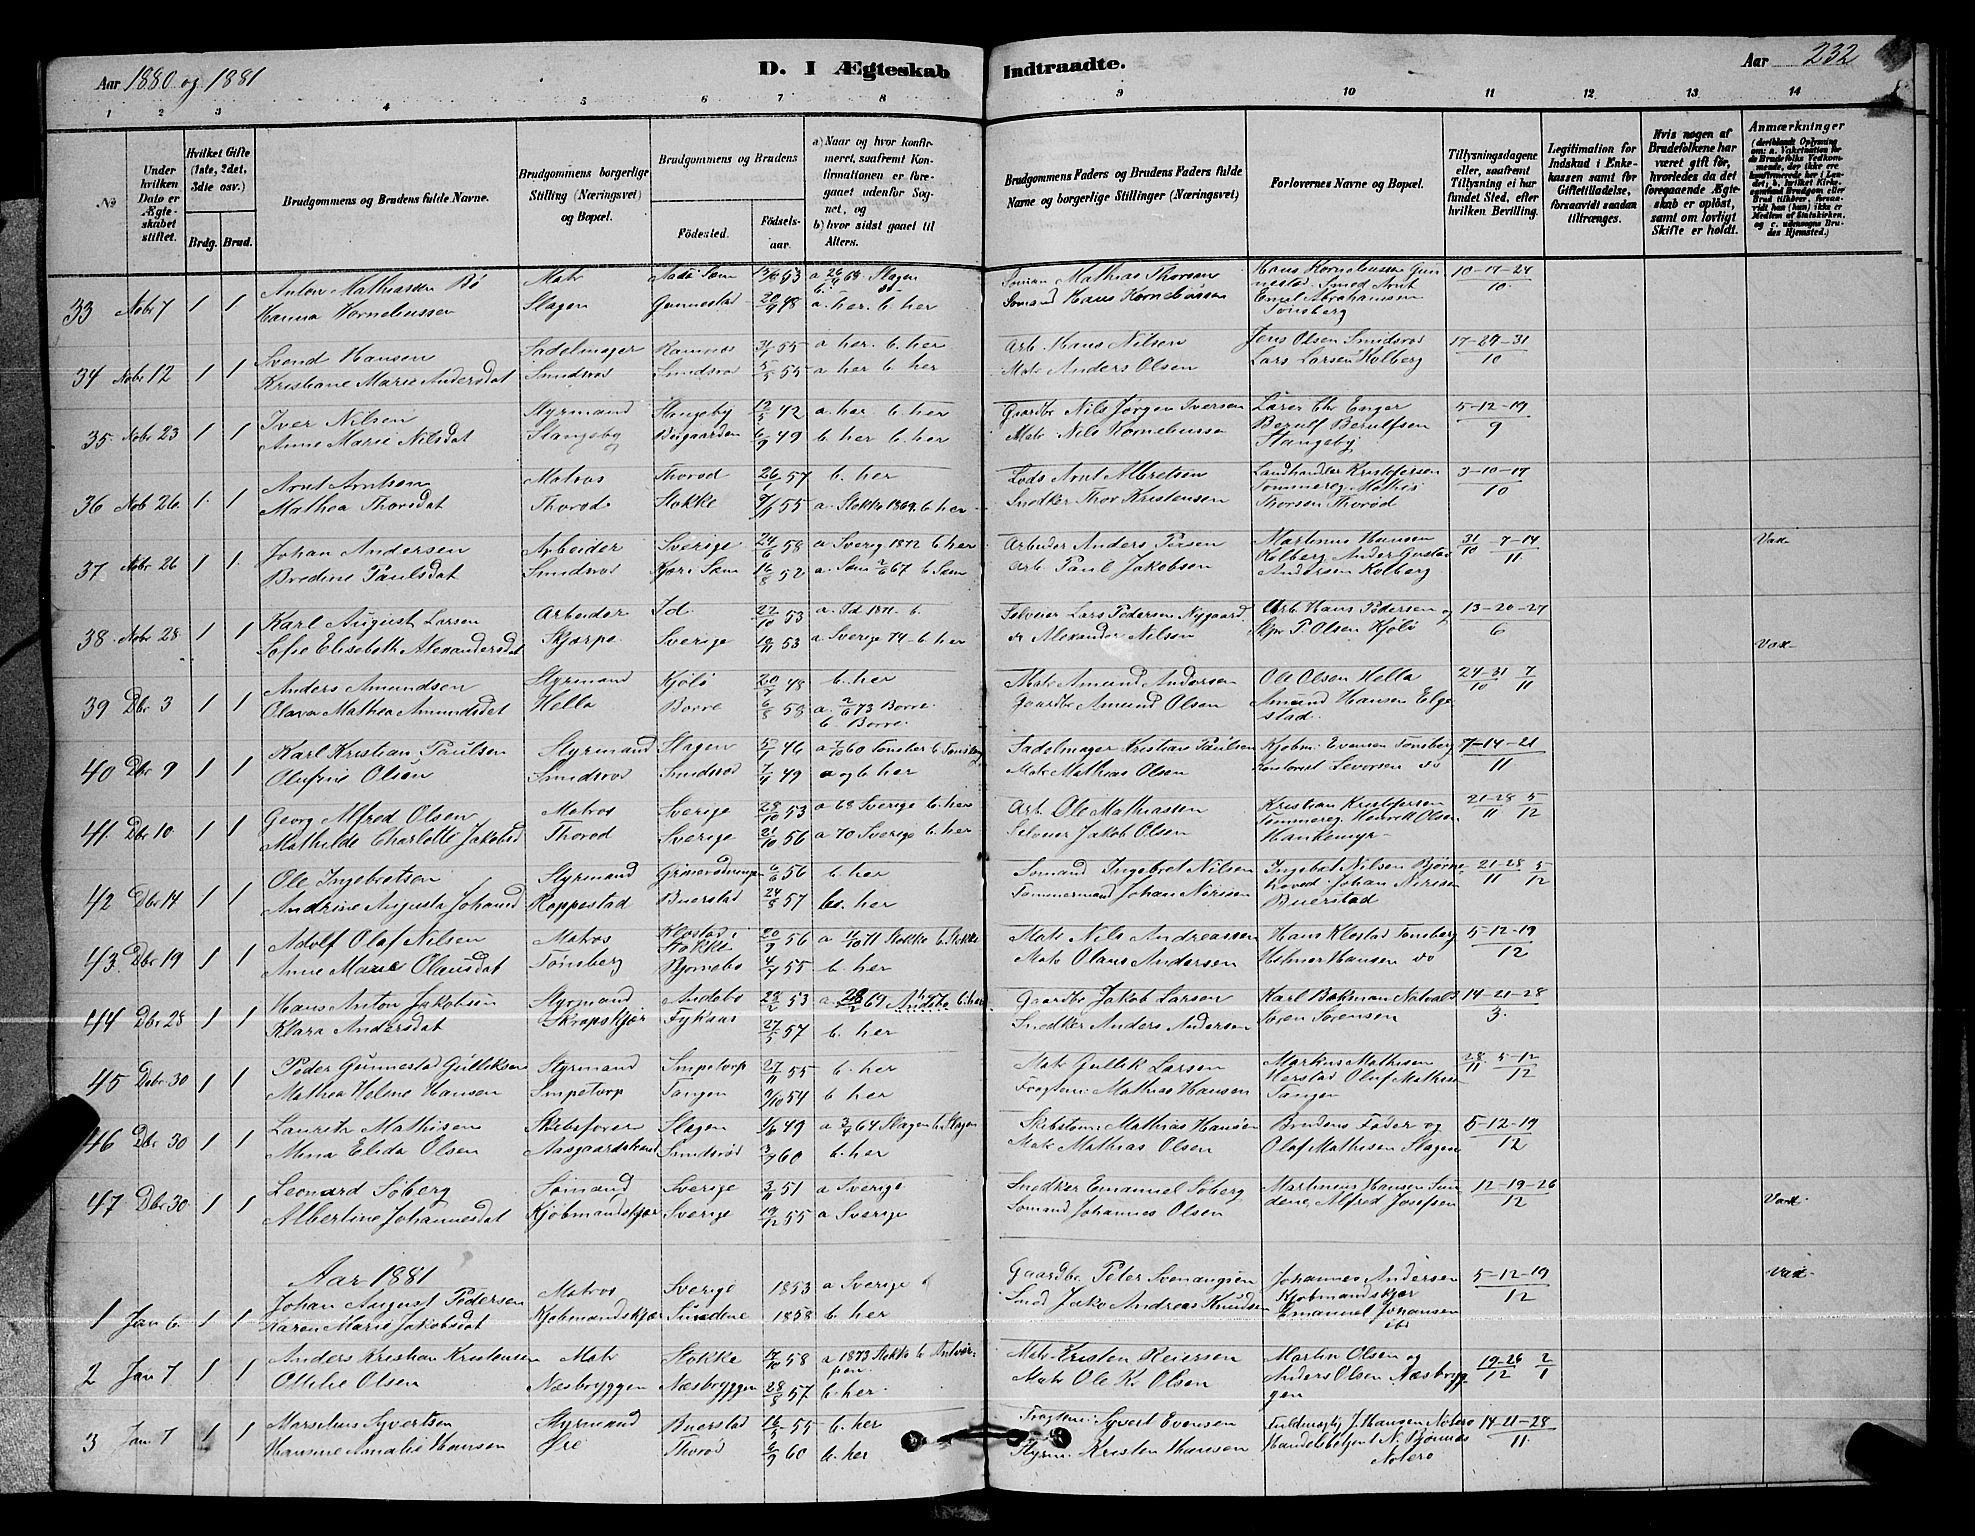 Aar 1880 og 1881
D. I Ægteskab Indtraadte.
Aar 232
1 2 3 4 5 6 7 8 9 10 11 12 13 14
No
Under hvilken Dato er Ægteskabet stiftet.
Hvilket Gifte (1ste, 2det, 3die osv.)
Brdg. Brud.
Brudgommens og Brudens fulde Navne.
Brudgommens borgerlige Stilling (Næringsvei) og Bopæl.
Brudgommens og Brudens
Födested. Födselsaar.
a) Naar og hvor konfirmeret, saafremt Konfirmationen er foregaaet udenfor Sognet, og
b) hvor sidst gaaet til Alters.
Brudgommens Faders og Brudens Faders fulde Navne og borgerlige Stillinger (Næringsvei)
Forlovernes Navne og Bopæl.
Tillysningsdagene eller, saafremt Tillysning ei har fundet Sted, efter hvilken Bevilling.
Legitimation for Indskud i Enkekassen samt for Giftetilladelse, forsaavidt saadan tiltrænges.
Hvis nogen af Brudefolkene har været gift för, hvorledes da det foregaaende Ægteskab er oplöst, samt om lovligt Skifte er holdt.
Anmærkninger
33 Nobr 7 1 1 Anton Mathiassen Bö Matr 63 a 26/9 64 Slagen Mathias Thorsen Hans Korneliussen Gun- 10-17-24
Hanna Korneliussen Slagen Gunnestad 20/9 48 a. her. b. her Somand Hans Korneliussen nestad. Smed Arnt 10
Emil Abrahamsen
Tonsberg
34 Nobr 12 1 1 Svend Hansen Sadelmager Ramnes 55 a her. b. her Arb. Hans Nilsen Jens Olsen Smidsrod 17-24-31
Kristiane Marie Andersdat Smidsrod Smidsrod 5/5 55 a her b. her Matr Anders Olsen Lars Larsen Kolberg 10
35 Nobr 23 1 1 Iver Nilsen Styrmand Stangeby 12/5 42 a. her. b. her Gaardbr Nils Jørgen Iversen Lærer Chr Enger 5-12-19
Anne Marie Nilsdat Stangeby Bugaarden 6/9 49 b. her b. her Matr Nils Korneliussen Berulf Berulfsen 9
Stangeby
36 Nob 26. 1. 1 Arnt Arntsen Matros Thorod 26/1 57 b. her Lods Arnt Albretsen Landhandler Kristofersen 3-10-17
Mathea Thorsdat Thorod Stokke 7/11 55 a. Stokke 1869. b. her Snedker Thor Kristensen Tommereg. Mathis 10
Thorsen Thorød
37 Nobr 26 1 1 Johan Andersen Arbeider Sverige 24/6 58 a Sverig 1872 b. her Arbeider Anders Persen Martinus Hansen 31/10 7-14 Vax
Bredine Paulsdat Smidsrod Kjær i Sem 16/8 52 a. Sem 67 b. Sem Arb Paul Jakobsen Kolberg Ander Gustav 11
Andersen Kolberg
38 Nobr 28 1 1 Karl August Larsen Arbeider Id. 22/10 53 a. Id 1871. b. Selveier Lars Pedersen Nygaard Arb Hans Pedersen og 13-20-27
Sofie Elisabeth Alexandersdat Skjærpe Sverige 18/11 53 a Sverige 74 b her Alexander Nilsen P. Olsen Kjölö 6 Vax
39 Dbr 3 1 1 Anders Amundsen Styrmand Kjölö 20/7 48 b. her Matr Amund Andersen Ole Olsen Hella 24/10 31 7/11
Olava Mathea Amundsdat Hella Borre 6/8 58 a. 73 Borre Gaardbr Amund Olsen Amund Hansen Elge
b. Borre stad
40 Dbr 9 1 1 Karl Kristian Paulsen Styrmand Slagen 5/1 46 a 60 Tonsber b Tonsberg Sadelmager Kristian Paulsen Kjobm. Evensen Tonsberg 7-14-21
Olufine Olsen Smidsrod Smidsrod 7/4 49 a og b. her Matr Mathias Olsen Levorsen do 11
41. Dbr 10 1 1 Georg Alfred Olsen Matros Sverige 28/10 53 a 68 Sverige b. her Arb Ole Mathiassen Kristian Kristofersen 21-28 5
Mathilde Charlotte Jakobsd Thorod Sverige 21/10 56 a 70 Sverige b. her Selveier Jakob Olsen Tommereg Henrik Olsen 11 12
Hankemyr
42 Dbr 14 1 1 Ole Ingebretsen Styrmand 6/6 56 b. her Somand Ingebret Nilsen Ingebret Nilsen Bjørne- 21-28 5
Andrine Augusta Johansd Roppestad Buerstad 24/8 57 b. her Tommermand Johan Nirisen Johan Nirisen 11 12
Buerstad
43. Dbr 19 1 1 Adolf Olaf Nilsen Matros Klostad i Stokke 20/9 56 a 11/10 71 Stokke b. Stokke Matr Nils Andreassen Hans Klostad Tonsberg 5-12-19
Anne Marie Olausdat Tönsberg Bjørnebo 4/4 55 b. her Matr Olaus Andersen Helmer Hansen do 12
44 Dbr 28 1 1 Hans Anton Jakobsen Styrmand Andebo 28/2 53 a. 69 Andebo b. her Gaardbr Jakob Larsen Karl Bakman 14-21-28
Klara Andersdat 27/5 57 b. her Snedker Anders Andersen Soren Sorensen 3.
45 Debr 30 1 1 Peder Gunnestad Gulliksen Styrmand Impetorp 27/11 55 b. her Matr Gullek Larsen Markus Mathisen 28/11 5-12
Mathea Helene Hansen Impetorp Tangen 9/10 54 b her Mathias Hansen Herstad Oluf Mathisen 12
Tangen
46 Dbr 30 1 1 Lauritz Mathisen Skibsforer Slagen 1/6 49 a 64 Slagen b. Slagen Skibstom. Mathias Hansen Brudens Fader og 5-12-19
Mina Elida Olsen Aasgaardstrand Smidsröd 3/7 60 b. her Matr Mathias Olsen Olaf Mathisen Slagen 12
47 Dbr 30 1 1 Leonard Söberg Sömand Sverige 3/11 51 a Sverige Snedker Emanuel Söberg Martinus Hansen Sun- 12-19-26
Albertine Johannesdat Kjöbmandskjær Sverige 19/12 55 a Sverige Somand Johannes Olsen dene, Alfred Josefsen 12 Vax
Aar 1881
1 Jan 6. 1 1 Johan August Pedersen Matros Sverige 1853 a Sverige b Gaardbr Peter Svenungsen Johannes Andersen 5-12-19 Vax
Karen Marie Jakobsdat Kjobmandskjær Sundene 1858 b. her Smed Jakob Andreas Knudsen Kjobmandskjær 12
Emanuel Johansen
ibd
2 Jan 7 1 1 Anders Kristian Kristensen Matr Stokke 17/10 58 a 1873 Stokke b Antver- Matr Kristen Reiersen Martin Olsen og 19-26 2
pen.
Ottilie Olsen Næsbryggen Næsbryggen 28/8 57 b. her Matr Ole Kr Olsen Anders Olsen Næsbryg 12 1
gen
3 Jan 7 1 1 Marselius Syvertsen Styrmand Buerstad 16/5 55 b. her Syvert Evensen Fuldmægtig J. Hansen Notero 14-21-28
Hansine Amalie Hansen Öre Thorod 9/9 60 b. her Styrm. Kristen Hansen Handelsbetjent N. Bjönnes 11
Notero